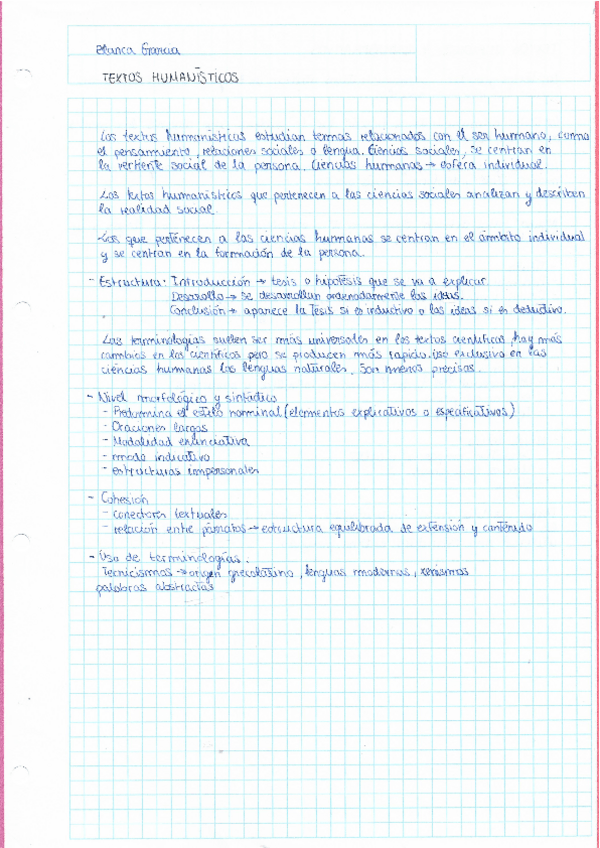 Blanca Garcia
TEXTOS HUMANÍSTICOS
Los textos humanísticos estudian temas relacionados con el ser humano, como
el pensamiento, relaciones sociales o lengua. Ciencias sociales, se centran en
la vertiente social de la persona. Ciencias humanas → esfera individual.
Los textos humanísticos que pertenecen a las ciencias sociales analizan y describen
la realidad social.
Los que pertenecen a las ciencias humanas se centran en el ámbito individual
y se centran en la formación de la persona.
- Estructura: Introducción → tesis o hipótesis que se va a explicar.
Desarrollo → se desarrollan ordenadamente las ideas.
Conclusión → aparece la Tesis si es inductivo o las ideas si es deductivo.
Las terminologías suelen ser más universales en los textos científicos, hay más
cambios en los científicos pero se producen más rapido. Uso exclusivo en las
ciencias humanas las lenguas naturales. Son menos precisas.
- Nivel morfológico y sintáctico
- Predomina el estilo nominal (elementos explicativos o especificativos)
- Oraciones largas
- Modalidad enunciativa
- modo indicativo
- estructuras impersonales
- Cohesión
- conectores textuales
- relación entre párrafos → estructura equilibrada de extensión y contenido
- Uso de terminologías.
Tecnicismos → origen grecolatino, lenguas modernas,
palabras abstractas